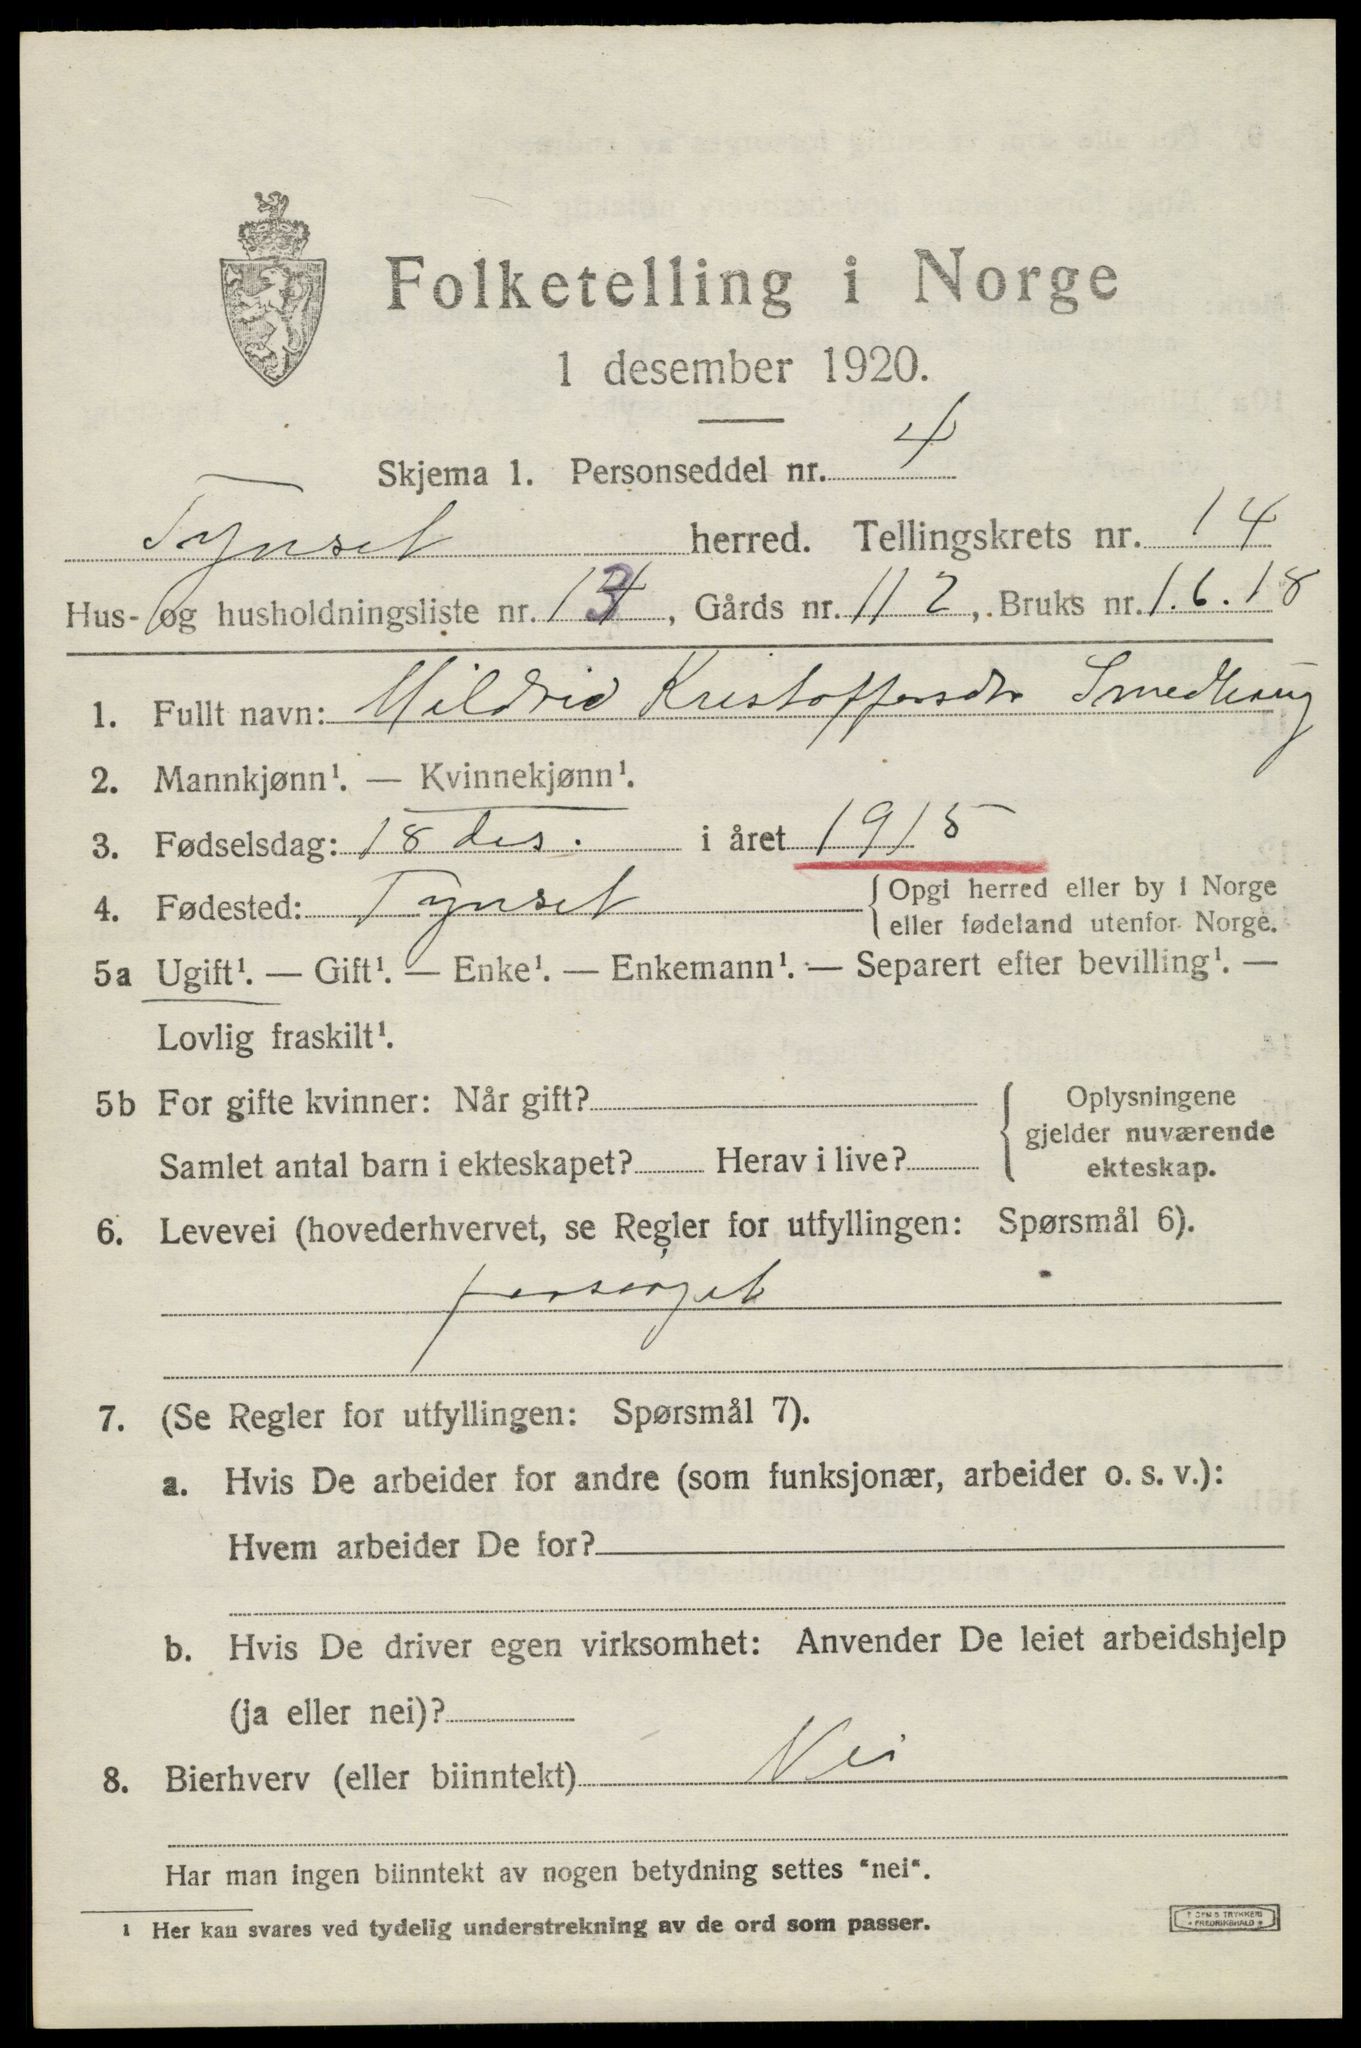 Folketelling i Norge
1 desember 1920.
Skjema 1. Personseddel nr. 4
Tynset herred. Tellingskrets nr. 14
Hus- og husholdningsliste nr. 13, Gårds nr. 112, Bruks nr. 1.6.18
1. Fullt navn: Mildrid Kristoffersdtr Smedhaug
2. Mannkjønn¹. — Kvinnekjønn¹.
3. Fødselsdag: 18 des. i året 1915
4. Fødested: Tynset { Opgi herred eller by i Norge
eller fødeland utenfor Norge.
5a Ugift¹. — Gift¹. — Enke¹. — Enkemann¹. — Separert efter bevilling¹. —
Lovlig fraskilt¹.
5b For gifte kvinner: Når gift?
Samlet antal barn i ekteskapet? Herav i live?
Oplysningene
gjelder nuværende
ekteskap.
6. Levevei (hovederhvervet, se Regler for utfyllingen: Spørsmål 6).
forsørget
7. (Se Regler for utfyllingen: Spørsmål 7).
a. Hvis De arbeider for andre (som funksjonær, arbeider o. s. v.):
Hvem arbeider De for?
b. Hvis De driver egen virksomhet: Anvender De leiet arbeidshjelp
(ja eller nei)?
8. Bierhverv (eller biinntekt) Nei
Har man ingen biinntekt av nogen betydning settes "nei".
¹ Her kan svares ved tydelig understrekning av de ord som passer.